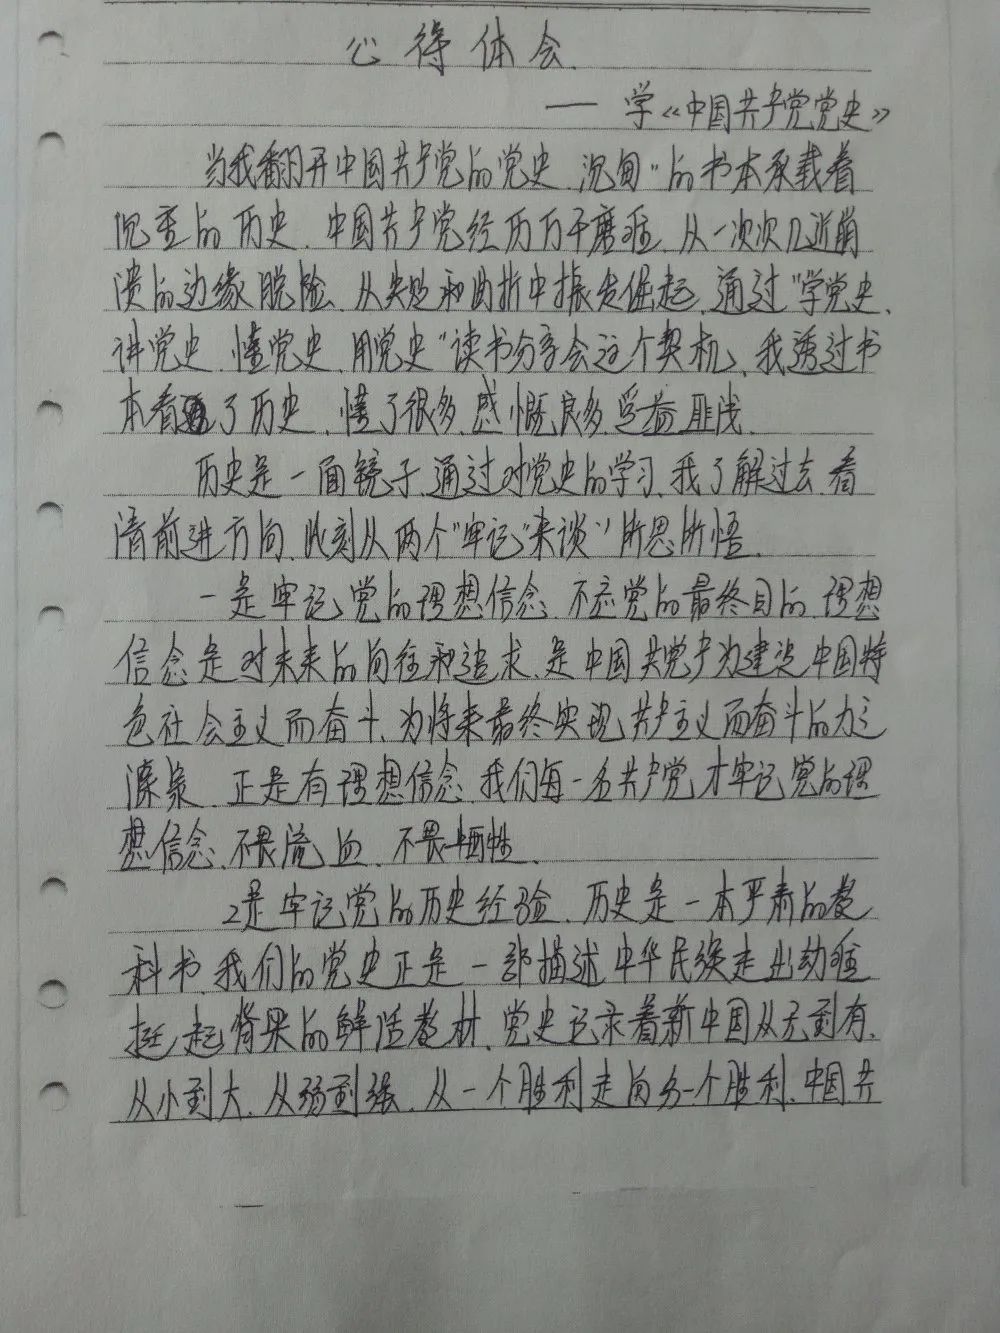 心得体会
——学《中国共产党党史》
当我翻开中国共产党的党史、沉甸〃的书本承载着
沉重的历史、中国共产党经历万千磨难、从一次次几近崩
溃的边缘脱险、从失败和曲折中振发倔起、通过“学党史、
讲党史、懂党史、用党史“读书分享会这个契机、我透过书
本看了历史、懂了很多、感慨良多、受益匪浅、
历史是一面镜子、通过对党史的学习、我了解过去、看
清前进方向、此刻从两个“牢记“来谈〃所思所悟、
一是牢记党的理想信念、不忘党的最终目的、理想
信念是对未来的向往和追求、是中国共党产为建设中国特
色社会主义而奋斗、为将来最终实现共产主义而奋斗的力之
源泉、正是有理想信念、我们每一名共产党才牢记党的理
想信念、不畏流血、不畏牺牲、
2是牢记党的历史经验、历史是一本严肃的教
科书、我们的党史正是一部描述中华民族走出劫难
挺起脊梁的鲜活教材、党史记录着新中国从无到有、
从小到大、从弱到强、从一个胜利走向另一个胜利、中国共